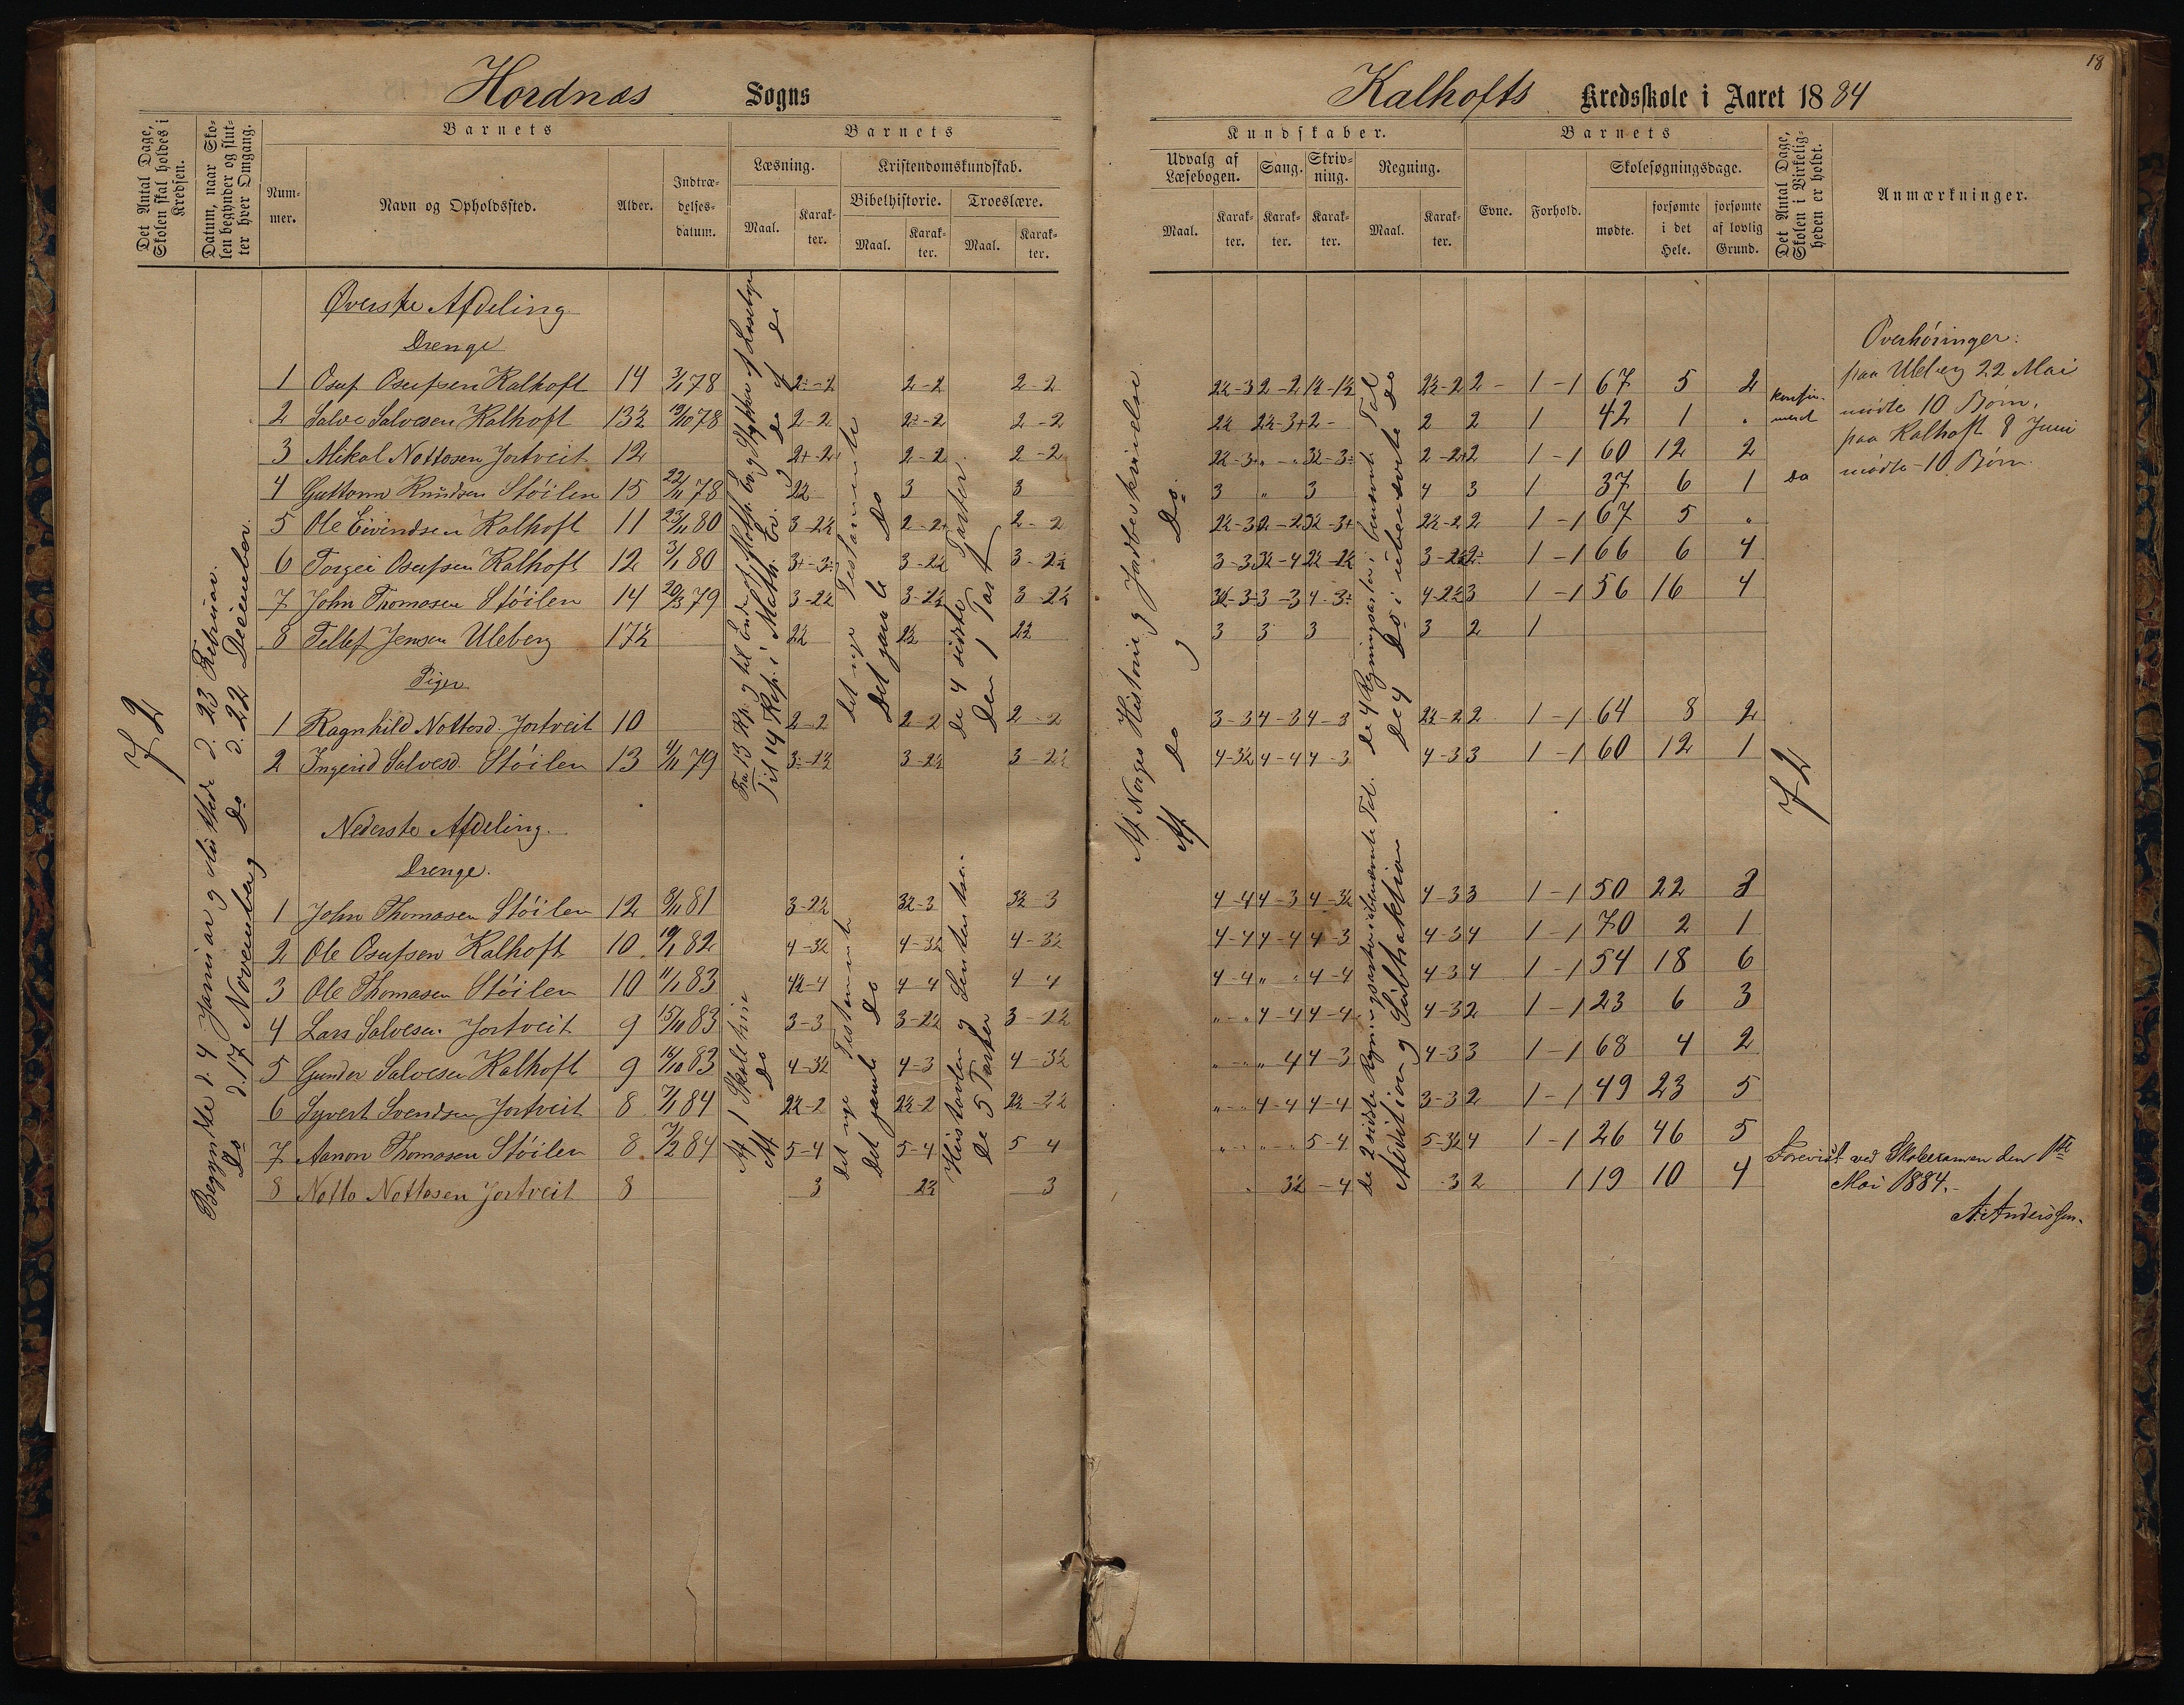 Hordnæs Sogns
Det Antal Dage, Skolen skal holdes i Kredsen.
Datum, naar Skolen begynder og slutter hver Omgang.
Barnets
Barnets
Nummer.
Navn og Opholdssted.
Alder.
Indtrædelsesdatum.
Læsning.
Kristendomskundskab.
Bibelhistorie.
Troeslære.
Maal.
Karakter.
Maal.
Karakter.
Maal.
Karakter.
72
Begyndte d. 4 Januar og sluttede d. 23 Februar.
Do d. 17 November og Do d. 22 December.
Øverste Afdeling
Drenge
1 Osuf Osufsen Kalhoft 14 3/1 78 2÷-2 2-2 2-2
2 Salve Salvesen Kalhoft 13½ 19/10 78 2-2 2÷-2 2-2
3 Mikal Nottosen Jortveit 12 2+-2+ 2-2 2-2
4 Guttorm Knudsen Støilen 15 22/11 78 2½ 3 3
5 Ole Eivindsen Kalhoft 11 23/11 80 3-2½ 2-2+ 2-2
6 Torgei Osufsen Kalhoft 12 3/1 80 3+-3÷ 3-2½ 3-2½
7 John Thomasen Støilen 14 20/3 79 3-2½ 3-2½ 3-2½
8 Tellef Jensen Uleberg 17½ 2½ 2½ 2½
Piger
1 Ragnhild Nottosd. Jortveit 10 2-2 2-2 2-2
2 Ingerid Salvesd. Støilen 13 4/11 79 3÷-2½ 3-2½ 3-2½
Nederste Afdeling.
Drenge.
1 John Thomasen Støilen 12 81 3-2½ 3½-3 3½-3
2 Ole Osufsen Kalhoft 10 19/1 82 4-3½ 4-3½ 4-3½
3 Ole Thomasen Støilen 10 11/1 83 4½-4 4-4 4-4
4 Lars Salvesen Jortveit 9 15/11 83 3-3 3-2½ 3-2½
5 Gunder Salvesen Kalhoft 9 16/10 83 4-3½ 4-3 4-3½
6 Syvert Svendsen Jortveit 8 7/1 84 2½-2 2½-2 2½-2½
7 Aanon Thomasen Støilen 8 7/2 84 5-4 5-4 5-4
8 Notto Nottosen Jortveit 8 3 2½ 3
det nye Testamente
Det gamle Do
De 4 sidste Parter
Den 1 Part
Af 1 Skoletrin
Af Do
det nye Testamente
Det gamle Do
De 5 Parter
18
Kalhofts Kredsskole i Aaret 1884
Kundskaber.
Barnets
Udvalg af Læsebogen.
Sang.
Skrivning.
Regning.
Evne.
Forhold.
Skolesøgningsdage.
Det Antal Dage, Skolen i Virkeligheden er holdt.
Anmærkninger.
Maal.
Karakter.
Karakter.
Karakter.
Maal.
Karakter.
mødte.
forsømte i det Hele.
forsømte af lovlig Grund.
Af Norges Historie og Jordbeskrivelse
Af Do og Do.
de 4 Regningsarter i benævnte Tal
De 4 Do i ubenævnte Do
Addition og Subtraktion
2½-3 2-2 1½-1½ 2½-2 2- 1-1 67 5 2
2½ 2½-3+ 2- 2 2 1 42 1 "
2½-3+ " - " 3½-3÷ 2-2+ 2 1-1 60 12 2
3 " 3 4 3 1 37 6 1
2½-3 2-2 3½-3+ 2½-2 2 1-1 67 5 "
3-3 3½-4 2½-2½ 3-2½ 2÷ 1-1 66 6 4
3½-3 3-3 4-3÷ 4-2½ 3 1-1 56 16 4
3 3 3 3 2 1
3-3 4-3 4-3 2½-2 2 1-1 64 8 2
4-3½ 4-4 4-3 4-3 3 1-1 60 12 1
4-4 4-3 4-3½ 4-3 3 1-1 50 22 3
4-4 4-4 4-3 4-3 4 1-1 70 2 1
4-4 " - " 4-4 4-3 4 1-1 54 18 6
" - " 4-4 4-4 4-3 2 1-1 23 6 3
" - " " 4 4-3 4-3 3 1-1 68 4 2
" - " 4-4 4-4 3-3 2 1-1 49 23 5
" - " " - " 5-4 5-3½ 4 1-1 26 46 5
" 3½ -4 3 2 1 19 10 4
konfirmert
Do
72
Overhøringer:
paa Uleberg 22 Mai
mødte 10 Børn.
paa Kalhoft 8 Juni
mødte 10 Børn.
Forevist ved Skoleexamen den 1ste
Mai 1884.
A. Anderssen.